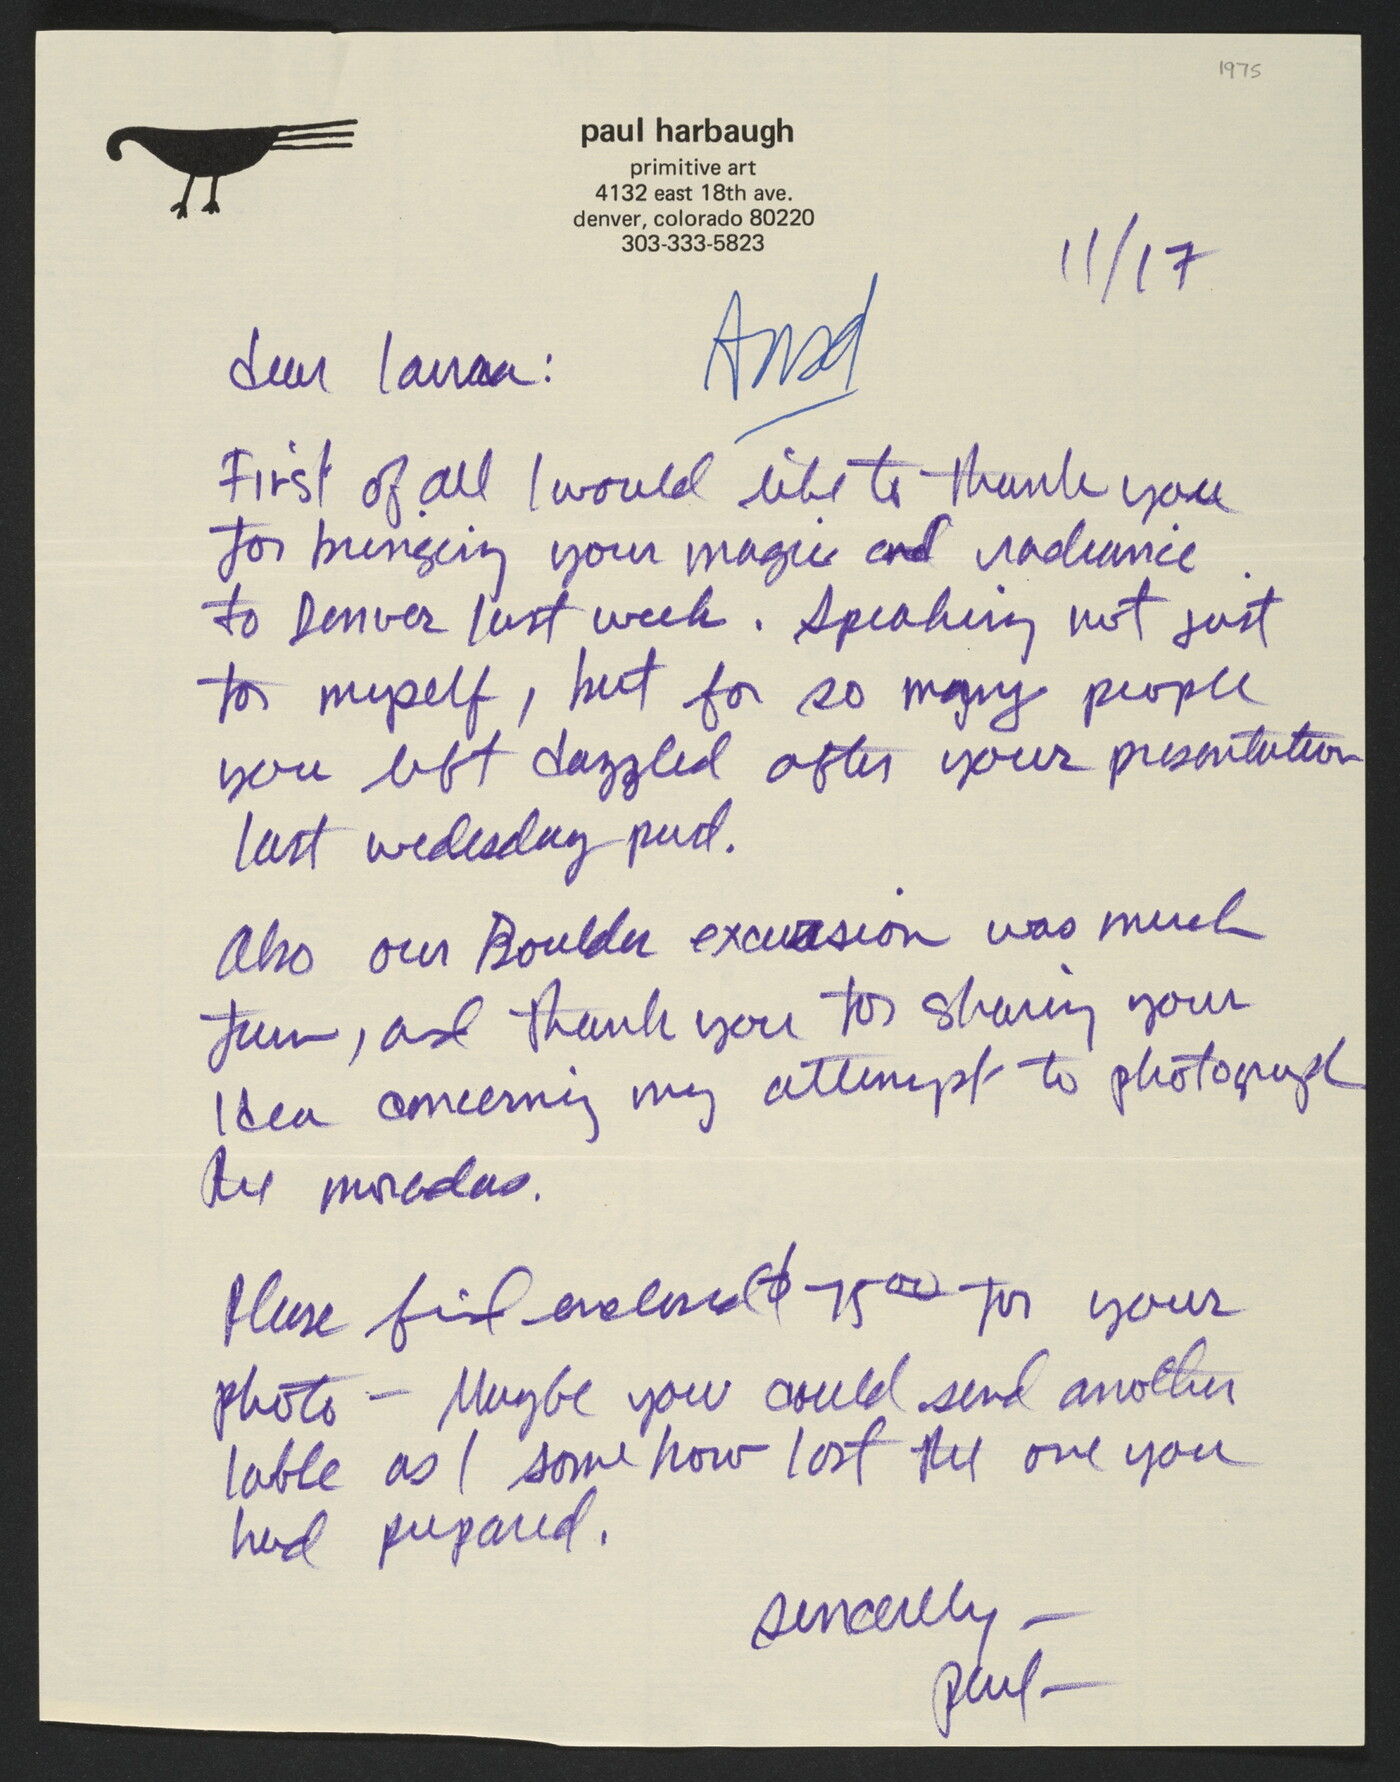 1975
paul harbaugh
primitive art
4132 east 18th ave.
denver, colorado 80220
303-333-5823
11/17
Ansd
dear laura:
First of all I would like to thank you
for bringing your magic and radiance
to Denver last week. Speaking not just
for myself, but for so many people
you left dazzled after your presentation
last wedesday past.
Also our Boulder excursion was much
fun, and thank you for sharing your
idea concerning my attempt to photograph
the moradas.
Please find enclosed $7500 for your
photo – Maybe you could send another
lable as I somehow lost the one you
had prepared.
sincerely –
paul –